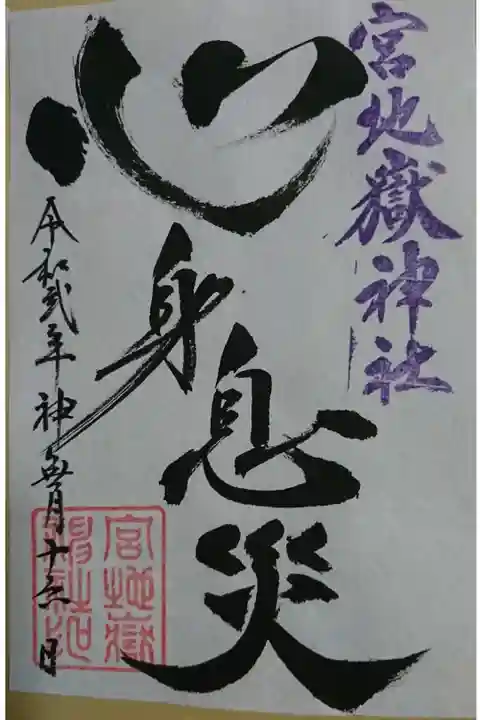 宮地嶽神社
心身息災
令和弐年神無月十 日
宮地嶽